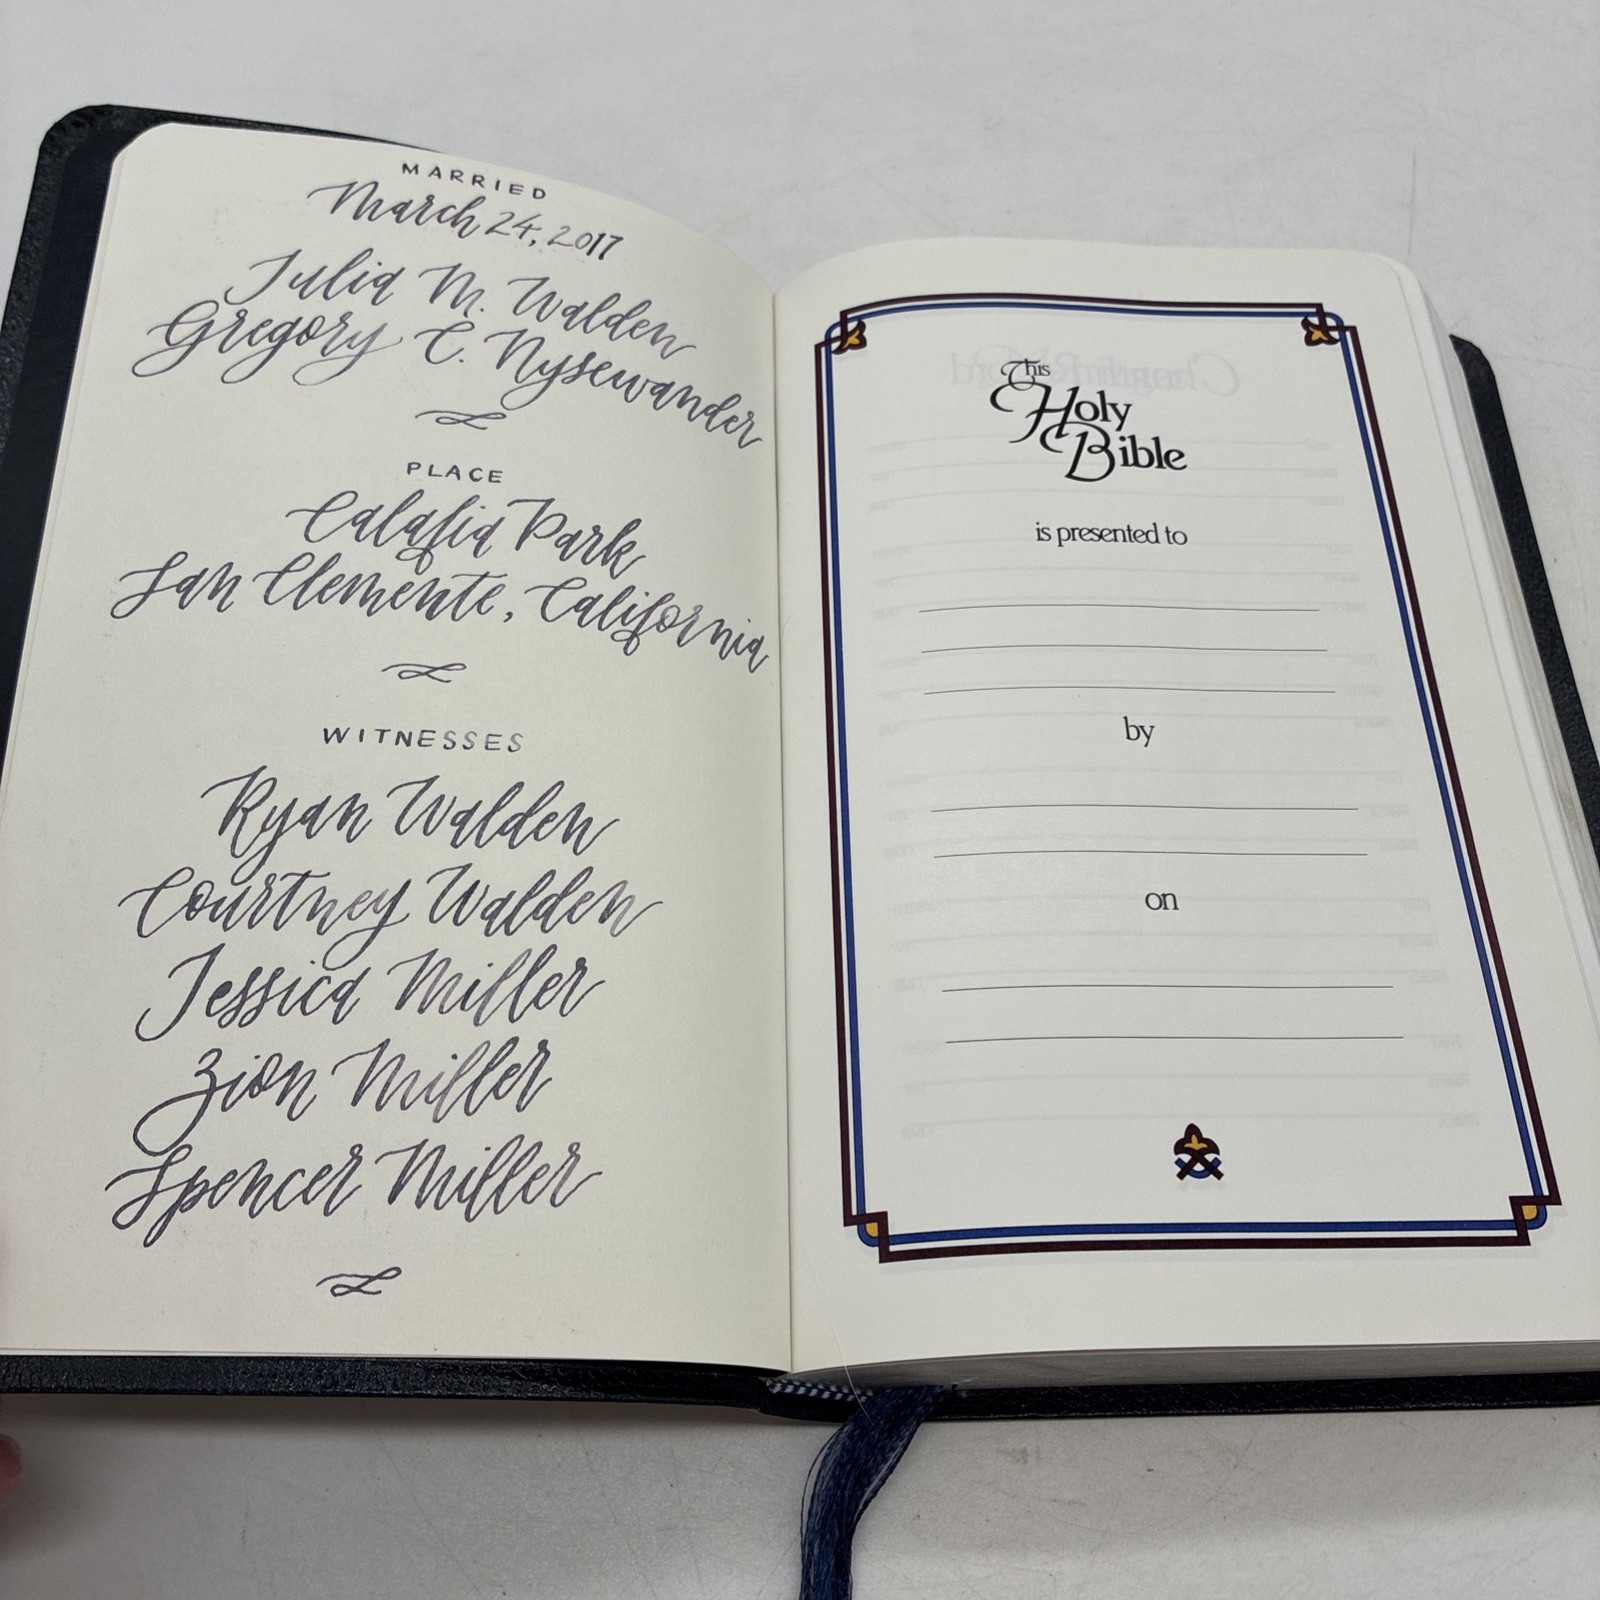 MARRIED
March 24, 2017
Julia M. Walden
Gregory C. Nysewander
PLACE
Calafia Park
San Clemente, California
WITNESSES
Ryan Walden
Courtney Walden
Jessica Miller
Zion Miller
Spencer Miller
This
Holy
Bible
is presented to
by
on